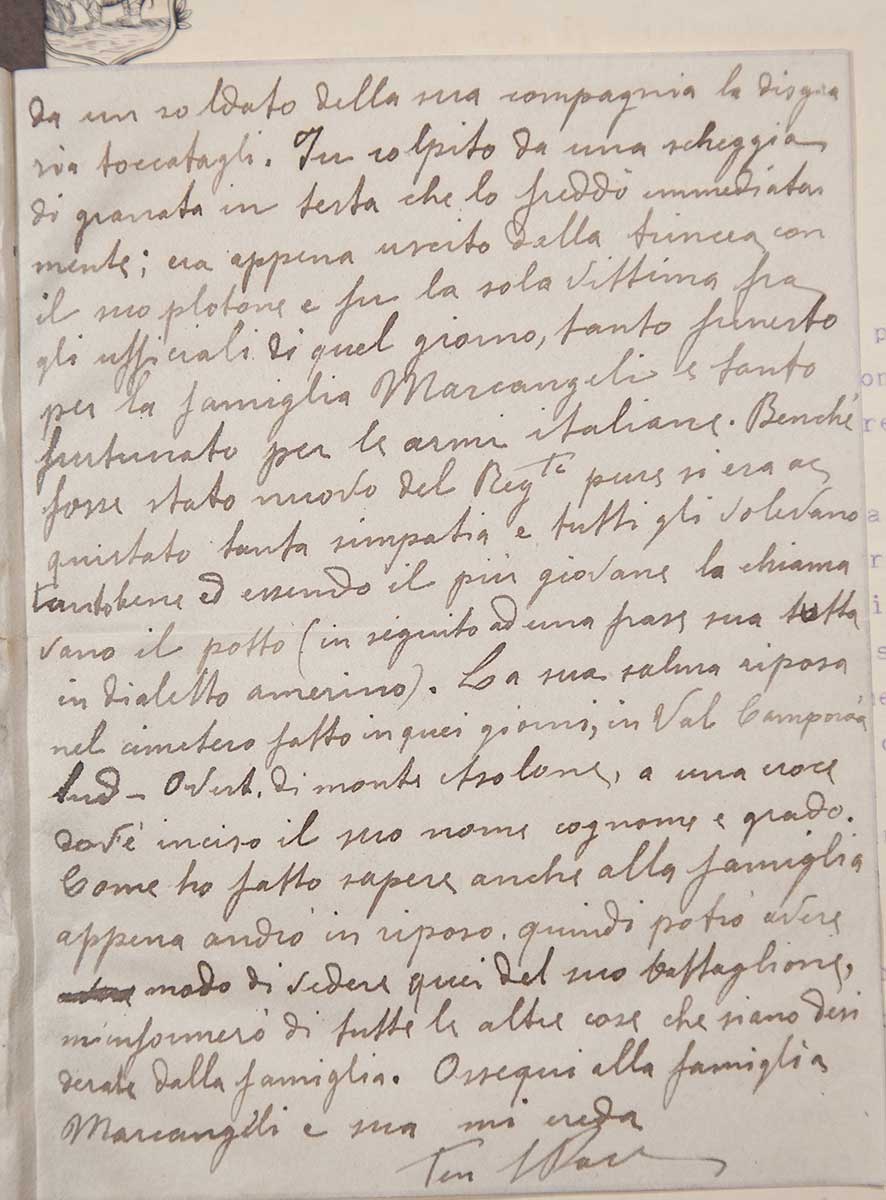 da un soldato della sua compagnia la disgra
zia toccatagli. Fu colpito da una scheggia
di granata in testa che lo freddò immediata
mente; era appena uscito dalla trincea con
il suo plotone e fu la sola vittima fra
gli ufficiali di quel giorno, tanto funesto
per la famiglia Marcangeli e tanto
fortunato per le armi italiane. Benché
fosse stato nuovo del Reg.to pure si era ac
quistato tanta simpatia e tutti gli volevano
tanto bene ed essendo il più giovane lo chiama
vano il potto (in seguito ad una frase sua tutta
in dialetto amerino). La sua salma riposa
nel cimetero fatto in quei giorni, in Val
Sud-Ovest. di monte Asolone, a una croce
dov'è inciso il suo nome cognome e grado.
Come ho fatto sapere anche alla famiglia
appena andrò in riposo. quindi potrò avere
modo di vedere quei del suo battaglione,
m'informerò di tutte le altre cose che siano desi
derate dalla famiglia. Ossequi alla famiglia
Marcangeli e sua mi creda
Ten